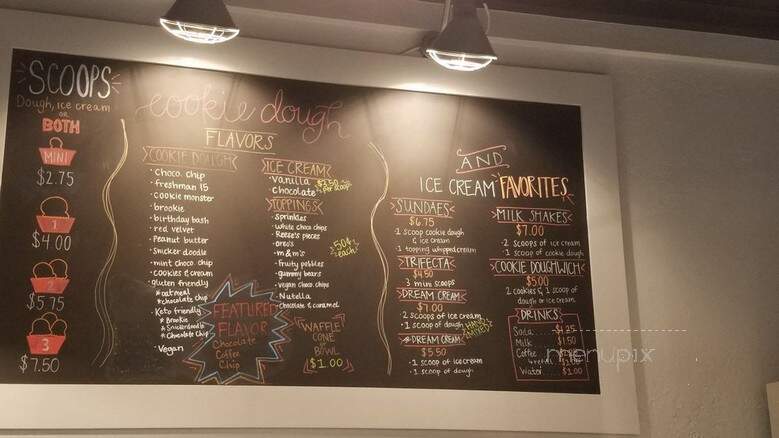 SCOOPS
Dough, ice cream
OR
BOTH
MINI
$2.75
1
$4.00
2
$5.75
3
$7.50
cookie dough
FLAVORS
COOKIE DOUGH
· choco chip
· freshman 15
· cookie monster
· brookie
· birthday bash
· red velvet
· Peanut butter
· snicker doodle
· mint choco chip
· cookies & cream
· gluten friendly
* oatmeal
* chocolate chip
· Keto friendly
* Brookie
* Snickerdoodle
* Chocolate Chip
· Vegan
ICE CREAM
· vanilla
· chocolate
$3.50
per scoop
TOPPINGS
· sprinkles
· white choco chips
· Reese's pieces
· oreo's
· m & m's
· Fruity pebbles
· gummy bears
· vegan choco chips
· Nutella
· Chocolate & caramel
.50¢
each!
FEATURED
FLAVOR
Chocolate
Coffee
Chip
WAFFLE
CONE
or
BOWL
$1.00
AND
ICE CREAM FAVORITES
SUNDAES
$6.75
· 1 scoop cookie dough
& ice cream
· 1 topping whipped cream
TRIFECTA
$4.50
3 mini scoops
DREAM CREAM
$7.00
· 2 scoops of ice cream
· 1 scoop of dough
DREAM CREAM
$5.50
· 1 scoop of ice cream
· 1 scoop of dough
MILK SHAKES
$7.00
· 2 scoops of ice cream
· 1 scoop of cookie dough
COOKIE DOUGHWICH
$5.00
2 cookies & 1 scoop of
dough or ice cream
DRINKS
Soda $1.25
Milk $1.50
Coffee
Water $1.00
menupix